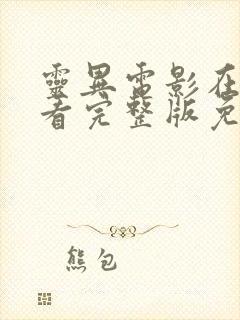 靈異電影在
看完整版免
熊包